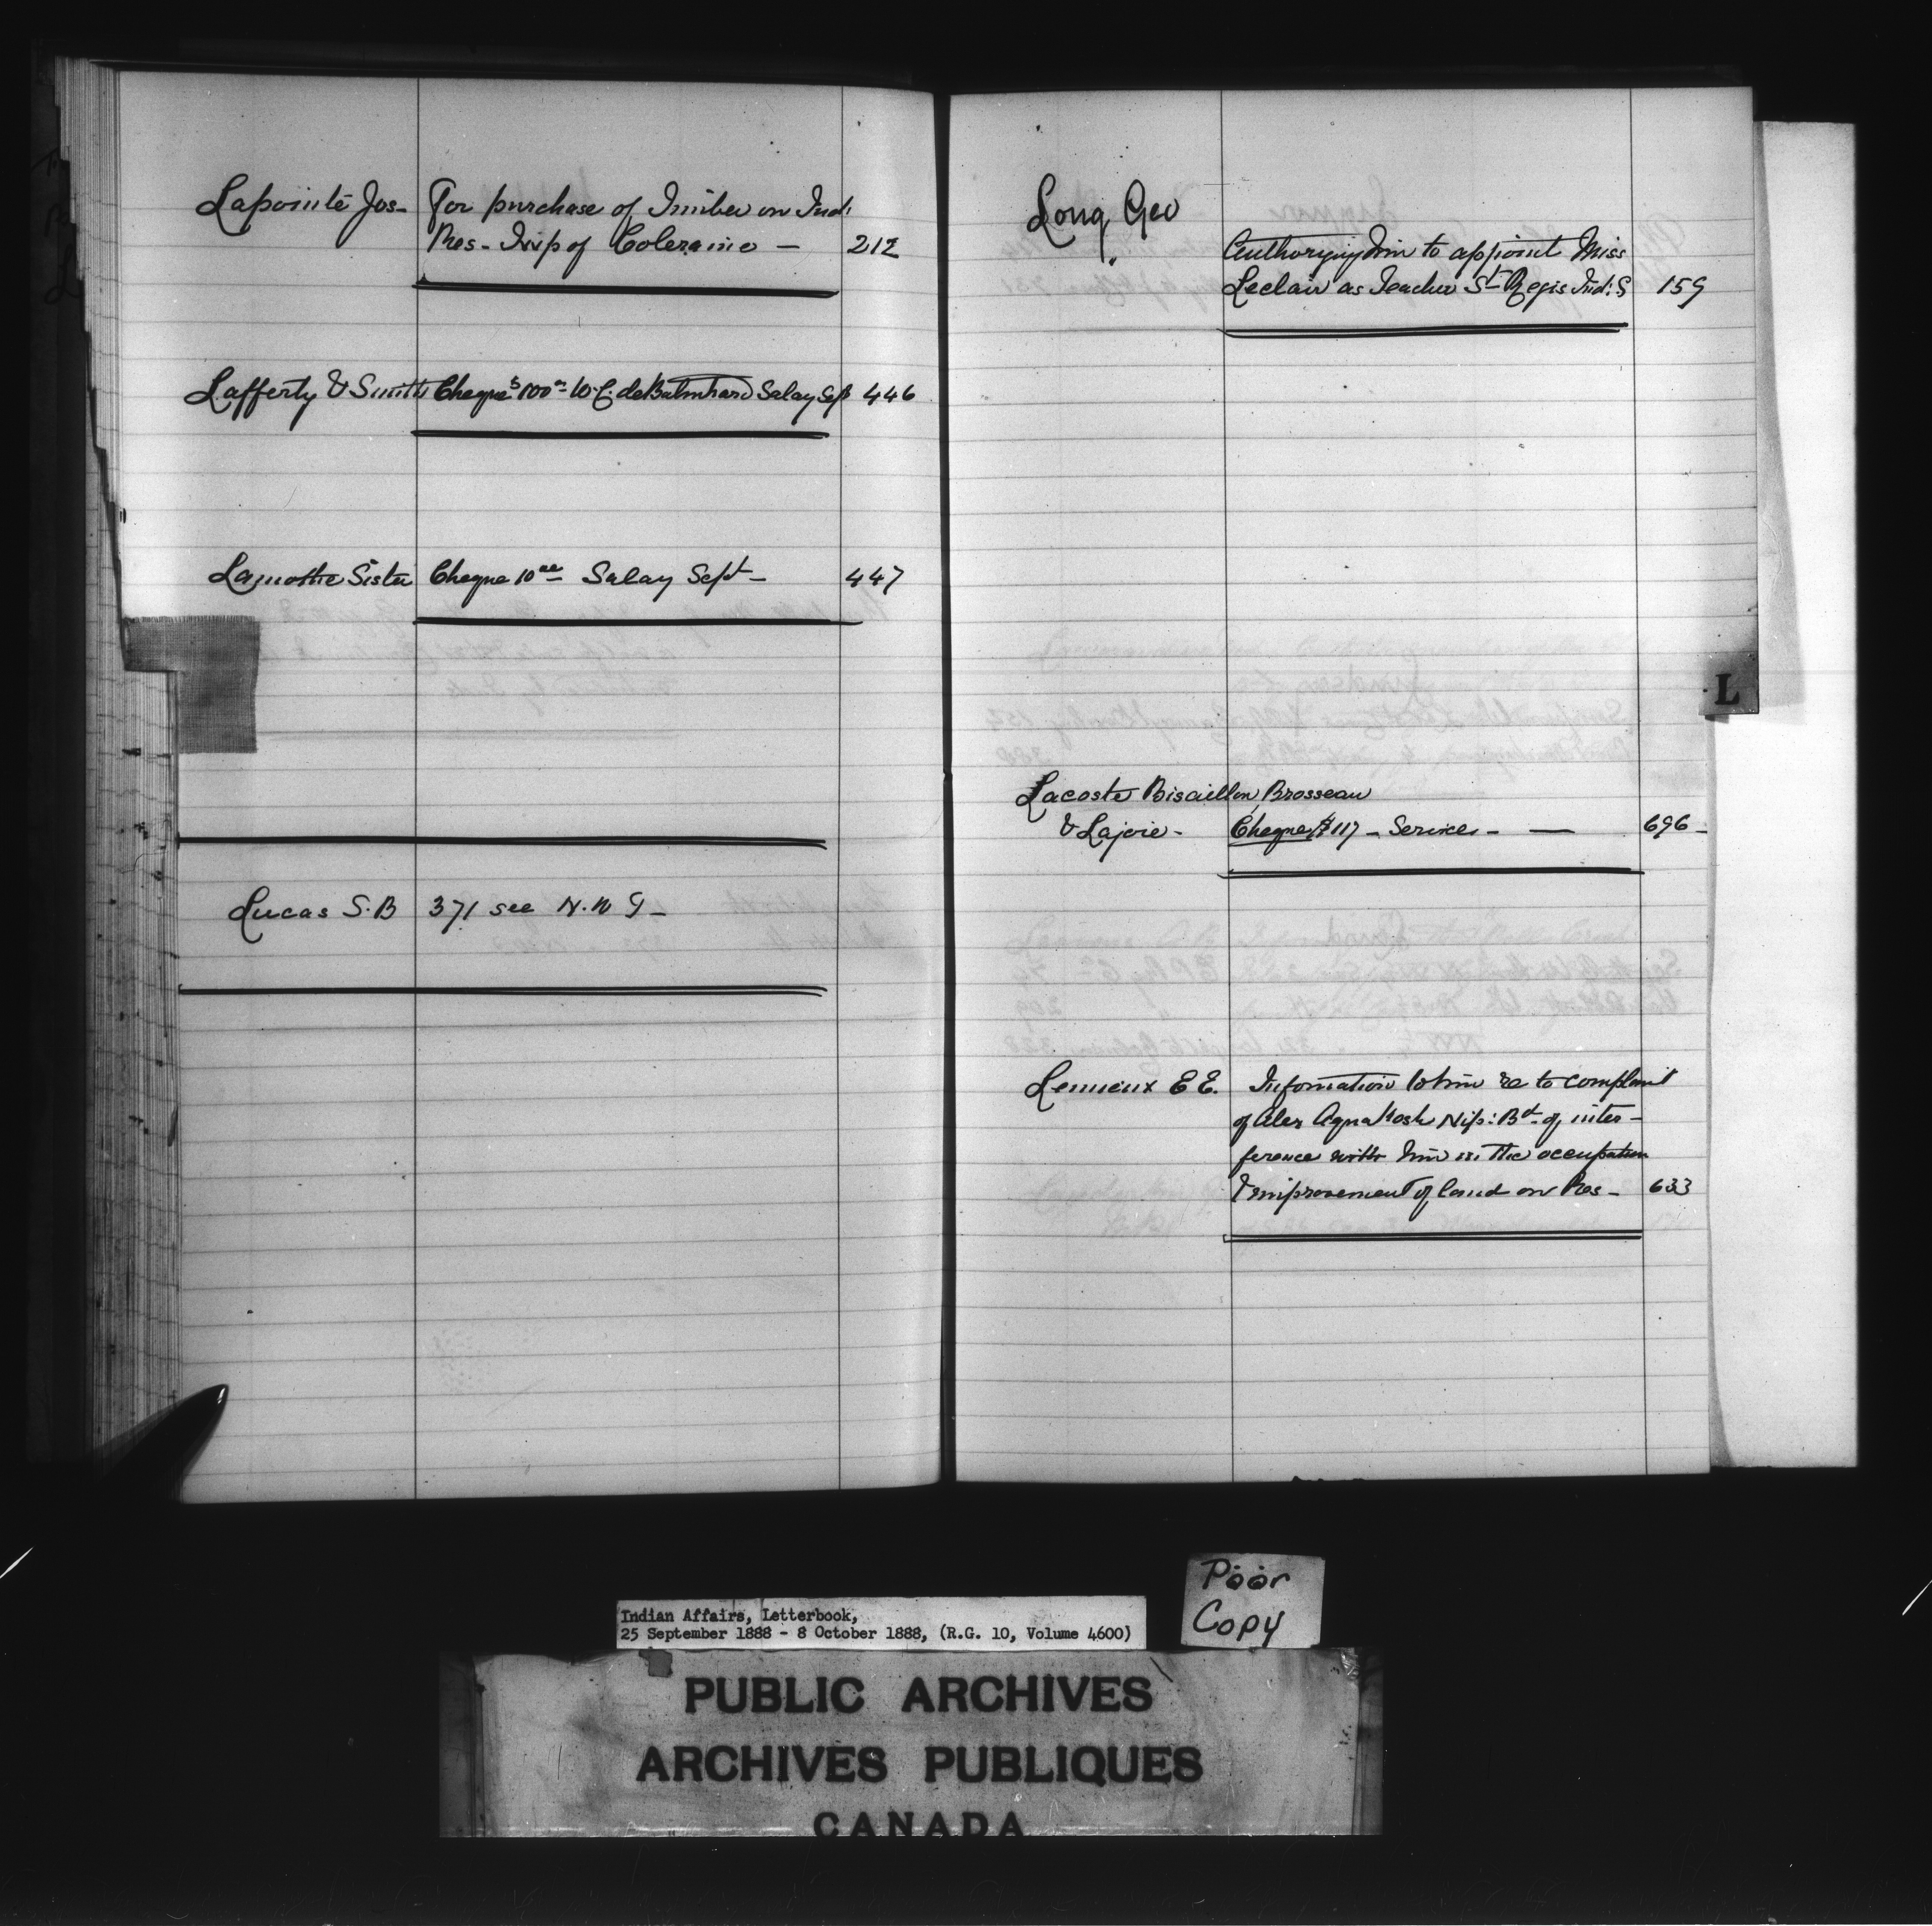 Lapointe Jos- For purchase of Timber on Ind:
Res- Twp of Coleraine - 212
Lafferty & Smith Cheque $100 W. C. de Balinhard Salay Sept 446
Lamothe Sister Cheque 10 00 Salay Sept - 447
Lucas S.B 371 see N.W T-
Long, Geo
Authorizing him to appoint Miss
Leclair as Teacher St Regis Ind: S 159
L
Lacoste Bisaillon, Brosseau
& Lajoie - Cheque $117 - Services - — 696 -
Lemieux E E. Information to him re to complaint
of Alex Nip: Bd of inter-
ference with him in the occupation
& improvement of land on Res- 633
Poor
Copy
Indian Affairs, Letterbook,
25 September 1888 - 8 October 1888, (R.G. 10, Volume 4600)
PUBLIC ARCHIVES
ARCHIVES PUBLIQUES
CANADA